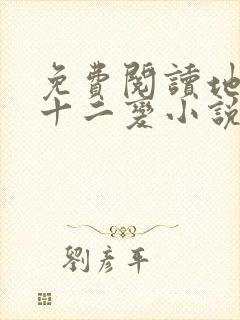 免費閱讀地
十二變小說
劉彥平